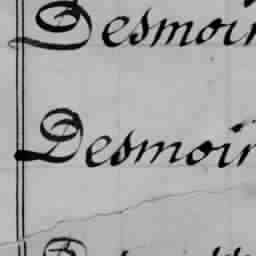 Desmoin
Desmoin